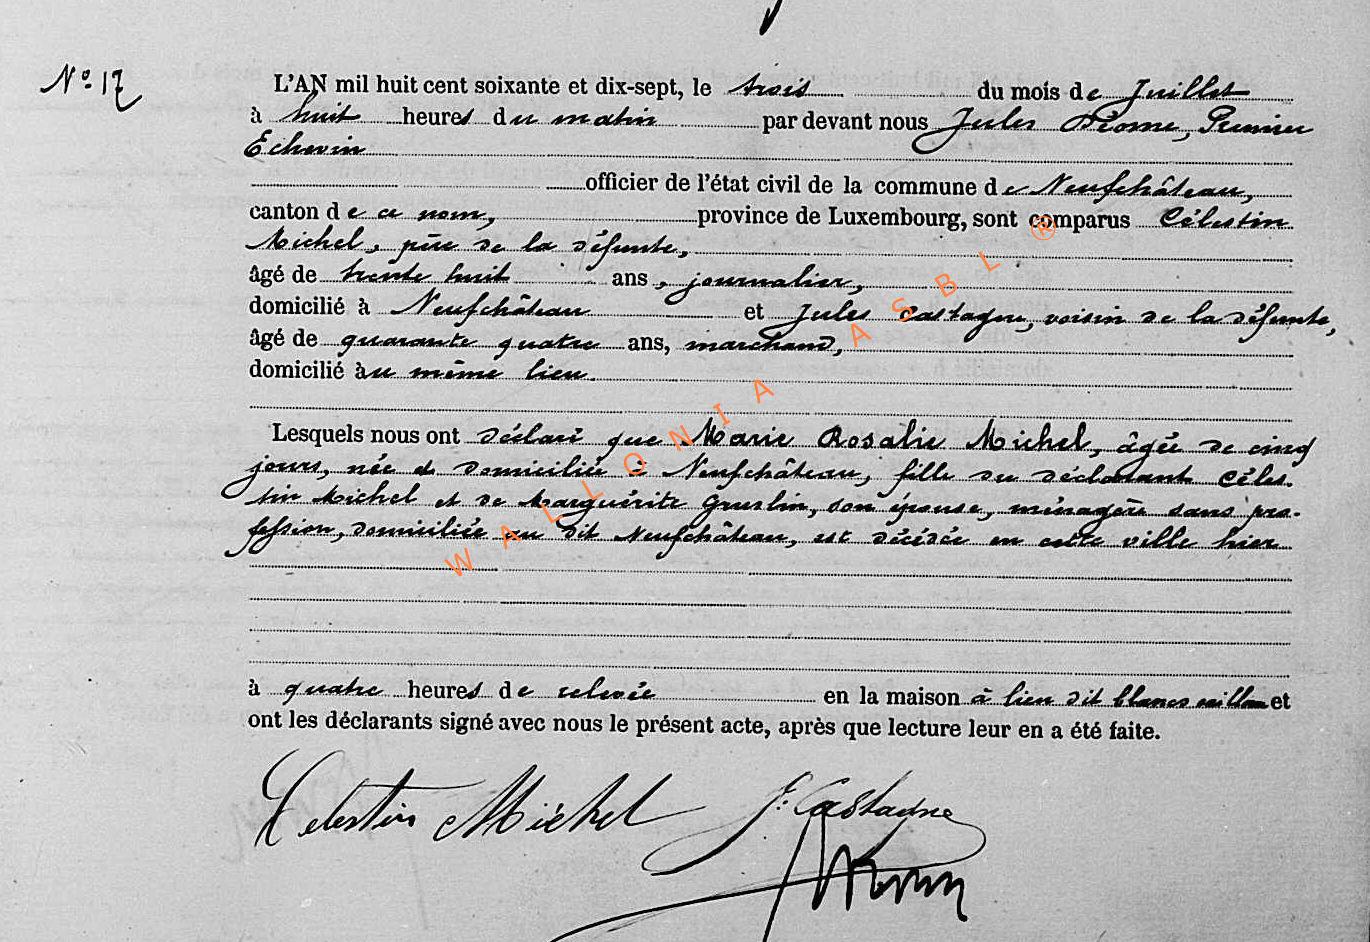 N° 17
L'AN mil huit cent soixante et dix-sept, le trois du mois de Juillet
à huit heures du matin par devant nous Jules Diome, Premier
Echevin
officier de l'état civil de la commune de Neufchâteau,
canton de ce nom, province de Luxembourg, sont comparus Célestin
Michel, père de la défunte,
âgé de trente huit ans, journalier,
domicilié à Neufchâteau et Jules Castagne, voisin de la défunte,
âgé de quarante quatre ans, marchand,
domicilié au même lieu
Lesquels nous ont déclaré que Marie Rosalie Michel, âgée de cinq
jours, née et domiciliée à Neufchâteau, fille du déclarant Céles-
tin Michel et de Marguérite Gruslin, son épouse, ménagère sans pro-
fession, domiciliée au dit Neufchâteau, est décédée en cette ville hier
à quatre heures de relevée en la maison à lieu dit et
ont les déclarants signé avec nous le présent acte, après que lecture leur en a été faite.
Celestin Michel J. Castagne
WALLONIA ASBL ®